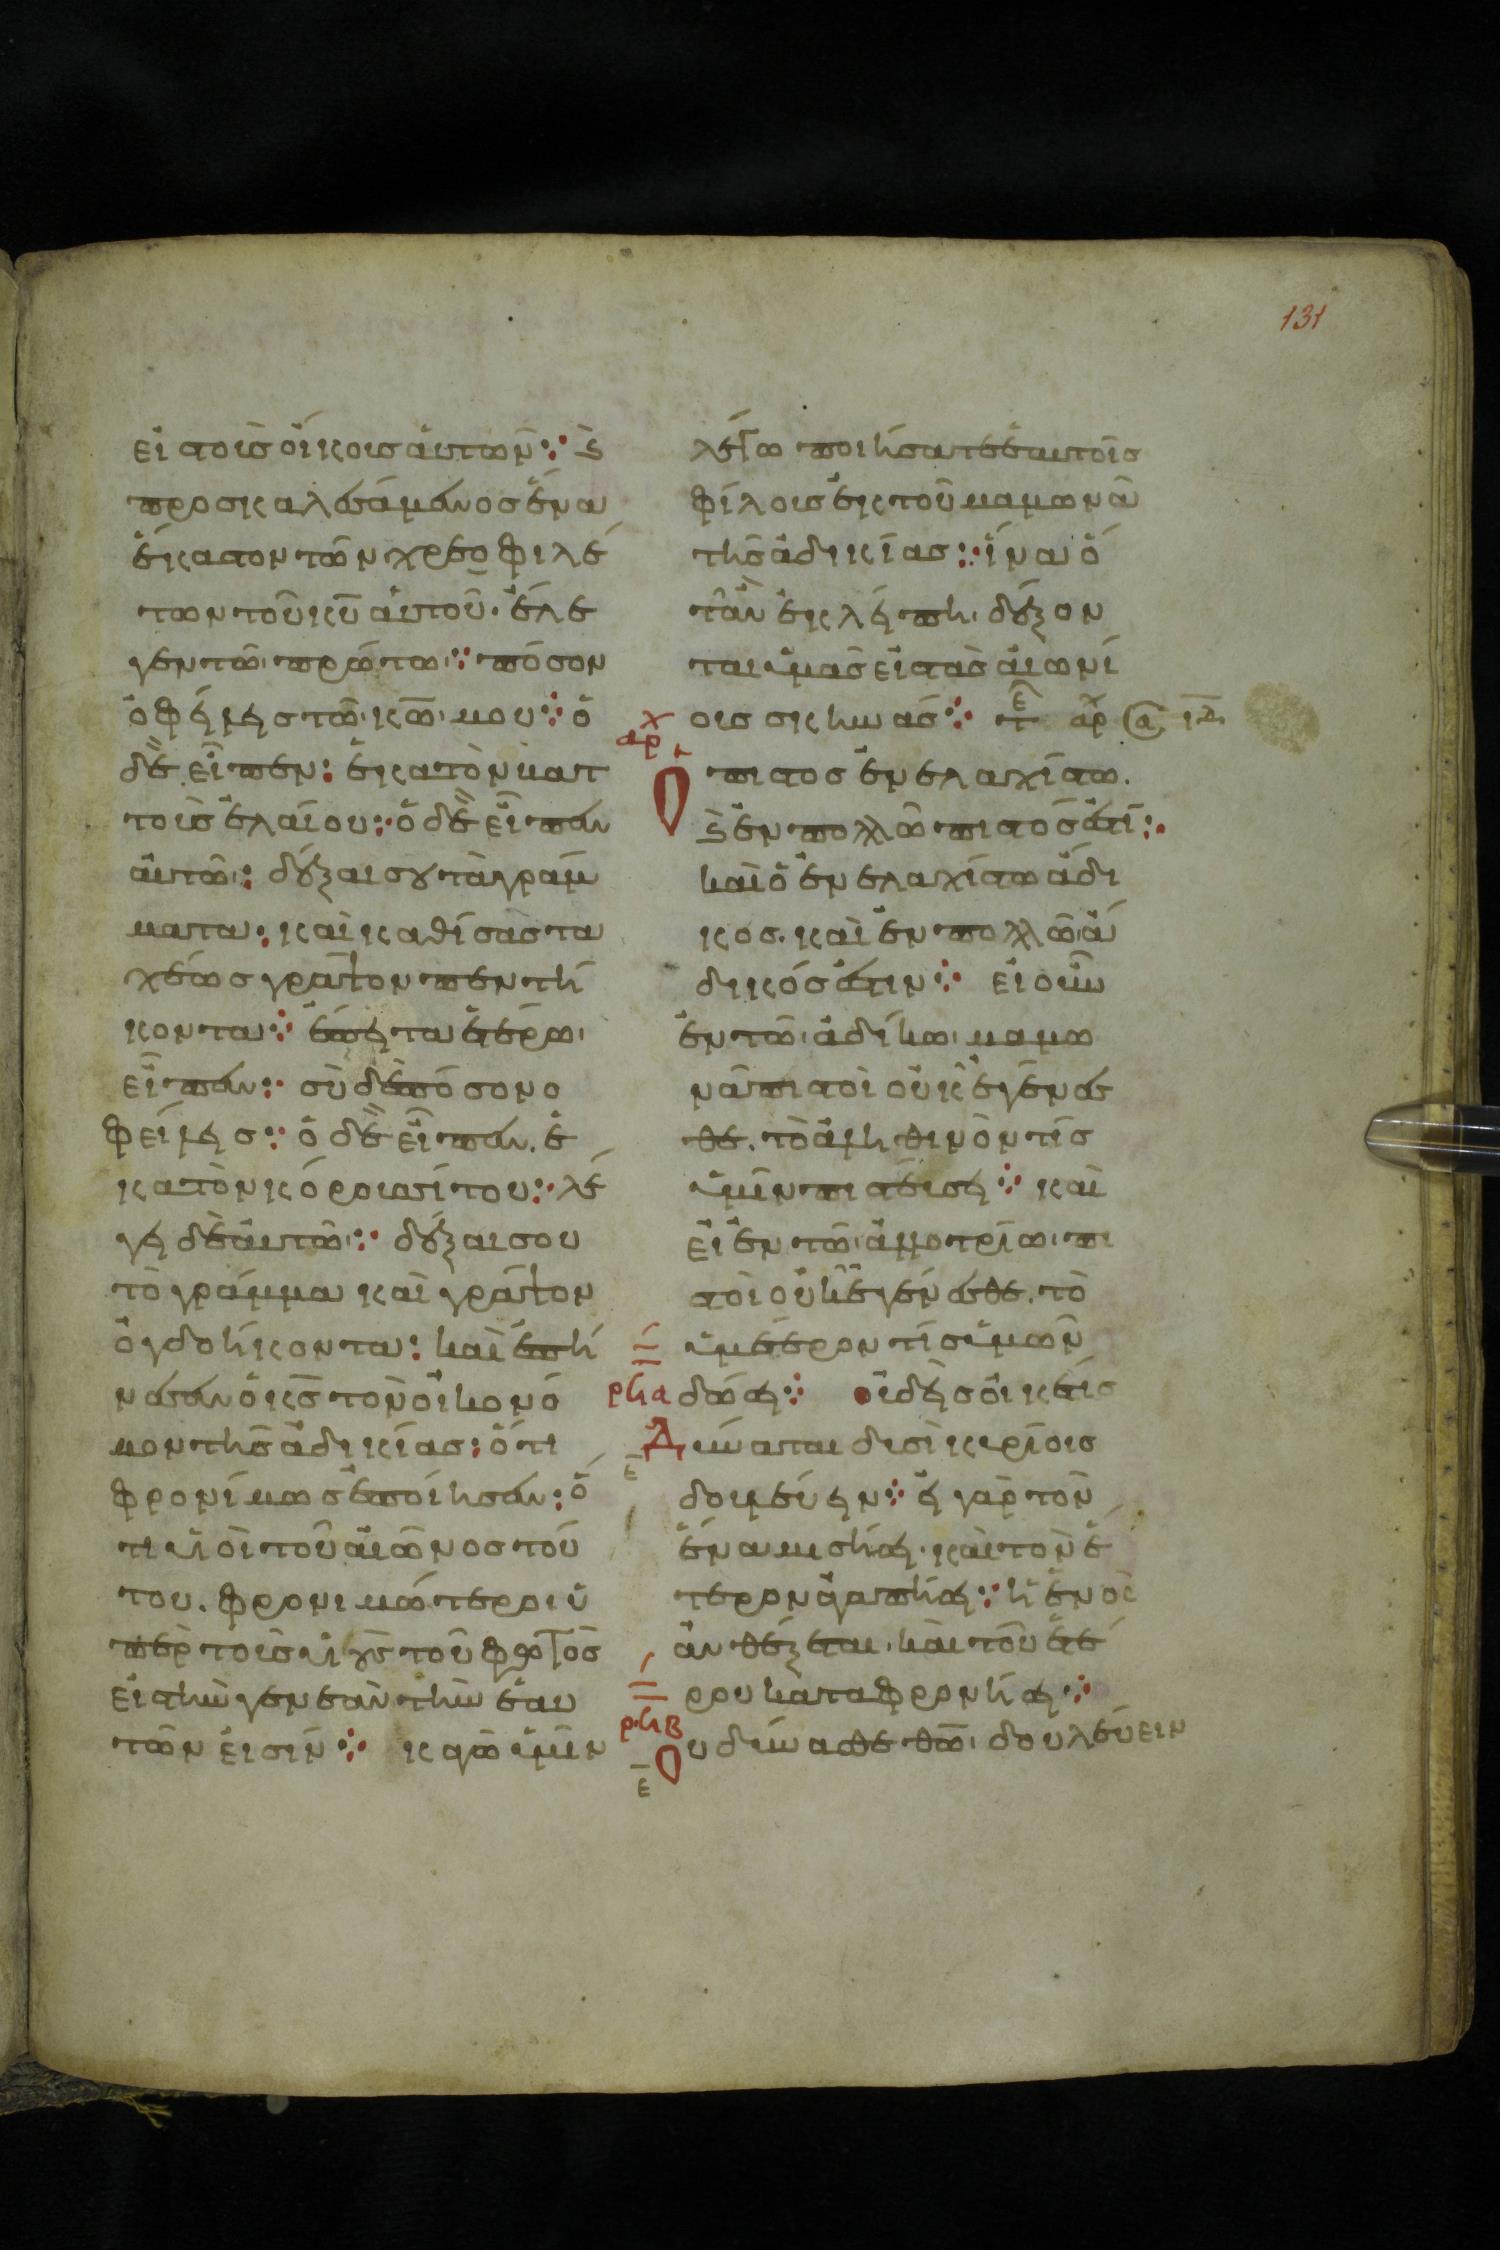 131
εἰ στοὺς οἴκους αὐτῶν ⁘ ϗ
προσκαλεσάμενος ἕνα
ἕκαστον τῶν χρεοφιλέ
των τοῦ κ̅υ̅ αὐτοῦ· ἔλε
γεν τῶ πρώτω ⁘ πόσον
ὀφείλεις τῶ κ̅ω̅ μου ⁘ ὁ
δὲ εἶπεν: ἑκατὸν βάτ
τους ἐλαίου: ὁ δὲ εἶπεν
αὐτῶ: δέξαι σου τὰ γράμ
ματα: καὶ καθίσας τα
χέως γράψον πεντή
κοντα ⁘ ἔπειτα ἑτέρω·
εἶπεν: σὺ δὲ πόσον ὀ
φείλεις: ὁ δὲ εἶπεν· ἑ
κατὸν κόρους σίτου: λέ
γει δὲ αὐτῶ ⁘ δέξαι σου
τὸ γράμμα καὶ γράψον
ὀγδοήκοντα: καὶ ἐπή
νεσεν ὁ κ̅ς̅ τὸν οἰκονό
μον τῆς ἀδικίας: ὅτι
φρονίμως ἐποίησεν: ὅ
τι υἱοὶ τοῦ αἰῶνος τού
του· φρονιμώτεροι ὑ
πὲρ τοὺς υἱοὺς τοῦ φωτὸς
εἰς τὴν γενεὰν τὴν ἑαυ
τῶν εἰσίν ⁘ κἀγὼ ὑμῖν
λέγω ποιήσατε ἑαυτοῖς
φίλους ἐκ τοῦ μαμωνᾶ
τῆς ἀδικίας: ἵνα ὅ
ταν ἐκλείπη· δέξον
ται ὑμᾶς εἰς τὰς αἰωνί
ους σκηνάς ⁘ τε αρχ
αρχ
Ὁ πιστὸς ἐν ἐλαχίστω·
ϗ ἐν πολλῶ πιστός ἐστι:
καὶ ὁ ἐν ἐλαχίστω ἄδι
κος· καὶ ἐν πολλῶ ἄ
δικός ἐστιν ⁘ εἰ οὖν
ἐν τῶ ἀδίκω μαμω
νᾶ πιστοὶ οὐκ ἐγένεσ
θε· τὸ ἀληθινὸν τίς
ὑμῖν πιστεύσει ⁘ καὶ
εἰ ἐν τῶ ἀλλοτρίω πι
στοὶ οὐκ ἐγένεσθε· τὸ
ὑμέτερον τίς ὑμῶν
ρϟα δώσει ⁘ οὐδεὶς οἰκέτης
Δύναται δυσὶ κυρίοις
ε δουλεύειν ⁘ εἰ γὰρ τὸν
ἕνα μισήσει· καὶ τὸν ἕ
τερον ἀγαπήσει ⁘ ἢ ἑνὸς
ἀνθέξεται· καὶ τοῦ ἑτέ
ρου καταφρονήσει ⁘
ρϟβ
ε Οὐ δύνασθε θ̅ω̅ δουλεύειν